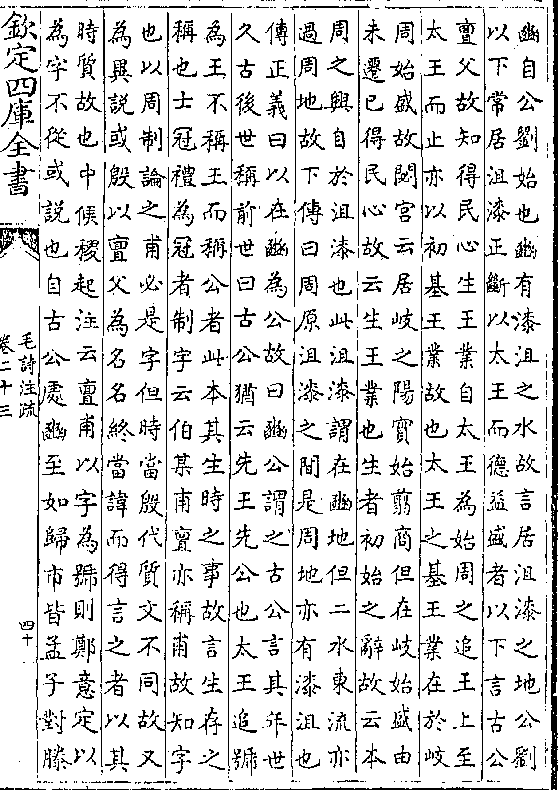 豳自公劉始也豳有漆沮之水故言居沮漆之地公劉
以下常居沮漆正斷以太王而德益盛者以下言古公
亶父故知得民心生王業自太王為始周之追王上至
太王而止亦以初基王業故也太王之基王業在於岐
周始盛故閟宮云居岐之陽實始翦商但在岐始盛由
未遷已得民心故云生王業也生者初始之辭故云本
周之興自於沮漆也此沮漆謂在豳地但二水東流亦
過周地故下傳曰周原沮漆之間是周地亦有漆沮也
傳正義曰以在豳為公故曰豳公謂之古公言其年世
久古後世稱前世曰古公猶云先王先公也太王追號
為王不稱王而稱公者此本其生時之事故言生存之
稱也士冠禮為冠者制字云伯某甫亶亦稱甫故知字
也以周制論之甫必是字但時當殷代質文不同故又
為異說或殷以亶父為名名終當諱而得言之者以其
時質故也中候稷起注云亶甫以字為號則鄭意定以
為字不從或說也自古公處豳至如歸市皆孟子對滕
欽定四庫全書
毛詩注疏
卷二十三
四十